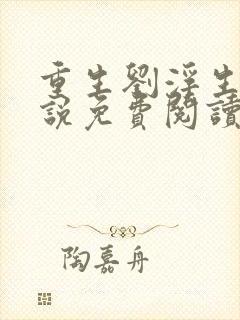 重生劉淫生
說免費閱讀
陶嘉舟